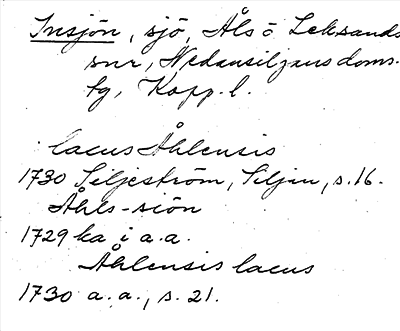 Insjön, sjö, Åls o Leksands
snr, Nedansiljans doms.
tg, Kopp. l.
lacus Åhlensis
1730 Seljeström, Siljan, s. 16.
Åhls-siön
1729 ka i a.a.
Åhlensis lacus
1730 a.a., s. 21.